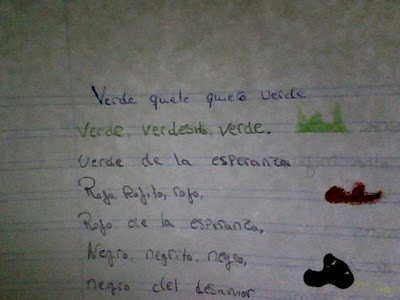 Verde quele quiero verde
verde, verdesito, verde.
verde de la esperanza
Roja Rojito, rojo,
Rojo de la esperanza,
Negro, negrito, negro,
negro del desamor